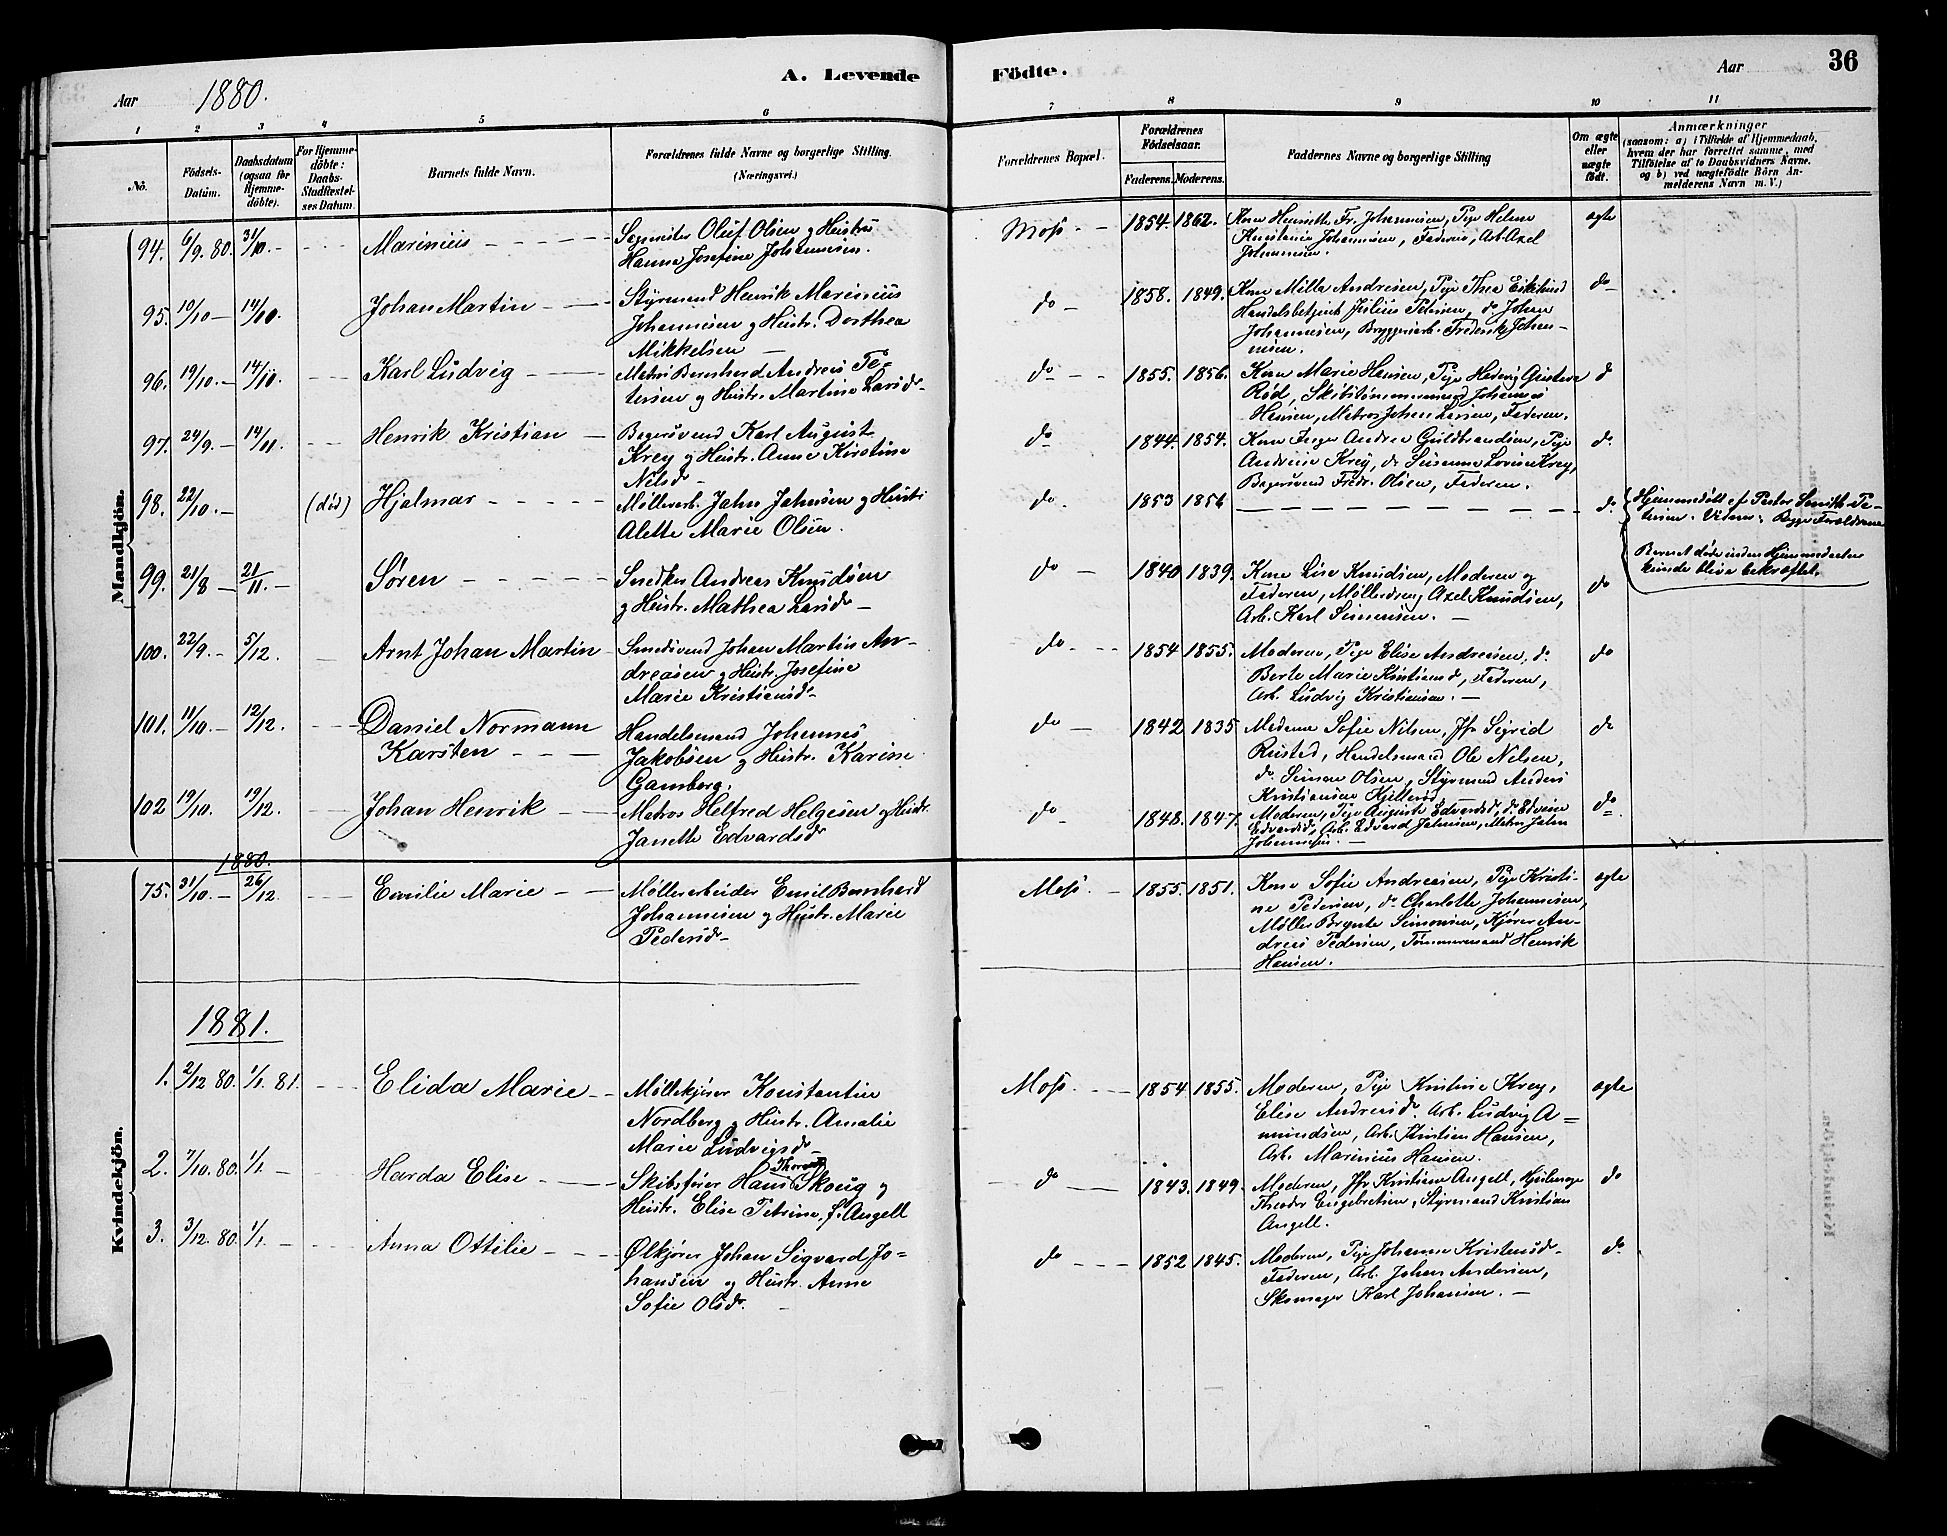 A. Levende Födte.
Aar 1880. Aar 36
1 2 3 4 5 6 7 8 9 10 11
No.
Födsels-
Datum.
Daabsdatum
(ogsaa for
Hjemme-
döbte).
For Hjemme-
döbte:
Daabs-
Stadfæstel-
ses Datum.
Barnets fulde Navn.
Forældrenes fulde Navne og borgerlige Stilling.
(Næringsvei.)
Forældrenes Bopæl.
Forældrenes
Födselsaar.
Faderens. Moderens.
Faddernes Navne og borgerlige Stilling
Om ægte
eller
uægte
født.
Anmærkninger
(saasom: a) i Tilfælde af Hjemmedaab,
hvem der har forrettet samme, med
Tilföielse af to Daabsvidners Navne.
og b) ved uægtefödte Börn An-
melderens Navn m. V.)
Mandkjön.
94. 6/9. 80. 31/10. Marinius Oluf Olsen og Hustru
Hanna Josefine Johannesen. Moss 1854. 1862. Kone Henriette Fr. Johannesen, Pige Helene
Johannesen, Faderen, Arb. Axel
Johannesen. ægte
95. 10/10 14/10. Johan Martin Styrmand Henrik Marinius
Johannesen og Hustr. Dorthea
Mikkelsen do 1858. 1849. Kone Milla Andresen, Pige Thea
Julius Petersen, do Johan
Johannesen, Frederik Johan-
nesen. do
96. 19/10. 14/11. Karl Ludvig Matros Bernherd Andreas Pe-
tersen og Hustr. Martine Larsdr. do 1855. 1856. Kone Marie Hansen, Pige Hedvig Gustava
Rød, Skibstømmermand Johannes
Hansen, Matros Johan Larsen, Faderen. d
97. 24/9. 14/11. Henrik Kristian Bagersvend Karl August
Krey og Hustr. Anne Kirstine
Nilsd. do 1844. 1854. Kone Inger Andrea Guldbrandsen, Pige
Andrine Krey, do Susanne Lovise Krey,
Bagersvend Fredr. Olsen, Faderen. do
98. 22/10. (død) Hjalmar Møllerarb. Jahn Jahnsen og Hustr
Alette Marie Olsen. do. 1853 1856 do Hjemmedøbt af Pastor Smith Pe-
tersen. Vidner: Begge Forældrene
Barnet døde inden Hjemmedaaben
kunde blive bekræftet.
99. 21/8 21/11. Søren Snedker Andreas Knudsen
og Hustr. Mathea Larsdr do 1840 1839. Kone Lise Knudsen, Moderen og
Faderen, Mølledreng Axel Knudsen,
Arb. Karl Simensen. do
100. 22/9. 5/12. Arnt Johan Martin Smedsvend Johan Martin An-
dreasen og Hustr. Josefine
Marie Kristiansdr do 1854 1855. Moderen, Pige Elise Andreasen, do.
Berte Marie Kristiansd, Faderen,
Arb. Ludvig Kristiansen. do
101. 11/10. 12/12. Daniel Normann
Karsten Handelsmand Johannes
Jakobsen og Hustr. Karine
Gamberg. do 1842 1835 Sofie Nilsen, Jfr Sigrid
Rusted, Handelsmand Ole Nilsen,
do. Simon Olsen, Styrmand Anders
Kristiansen do
102 19/10. 19/12. Johan Henrik Matros Helfred Helgesen og Hustr.
Janette Edvardsdr do 1848. 1847. Moderen, Pige Auguste Edvardsd, do
Edvardsd, Arb. Edvard Jahnsen, Matros Jahn
Johannesen. do
Kvindekjön.
1880.
75. 31/10. 26/12. Emilie Marie Møllerarbeider Emil Bernhard
Johannesen og Hustr. Marie
Pedersdr Moss. 1855. 1851. Kone Sofie Andreasen, Pige Kristi-
ne Pedersen, do Charlotte Johannesen,
Møller Simonsen, Kjører An-
dreas Pedersen, Tømmermand Henrik
Hansen. ægte
1881.
1. 2/12 80. 1/1. 81. Elida Marie Møllekjører Konstantin
Nordberg og Hustr. Amalie
Marie Ludvigsdr Moss. 1854 1855. Moderen, Pige Kristine Krey,
Elise Andreasdr. Arb. Ludvig A-
mundsen, Arb. Kristian Hansen,
Arb. Marinius Hansen. ægte
2. 7/10. 80. 1/1. Harda Elise Skibsfører Hans Skoug og
Hustr. Elise Petrine f. Angell do 1843. 1849. Moderen, Jfr Kristiane Angell,
Theodor Engebretsen, Styrmand Kristian
Angell. do
3. 3/12. 80. 1/1. Anna Ottilie Ølkjører Johan Sigvard Jo-
hansen og Hustr. Anne
Sofie Olsdr. do 1852 1845. Moderen, Pige Johanne Kristensdr
Faderen, Arb. Johan Andersen,
Skomager Karl Johansen. do.